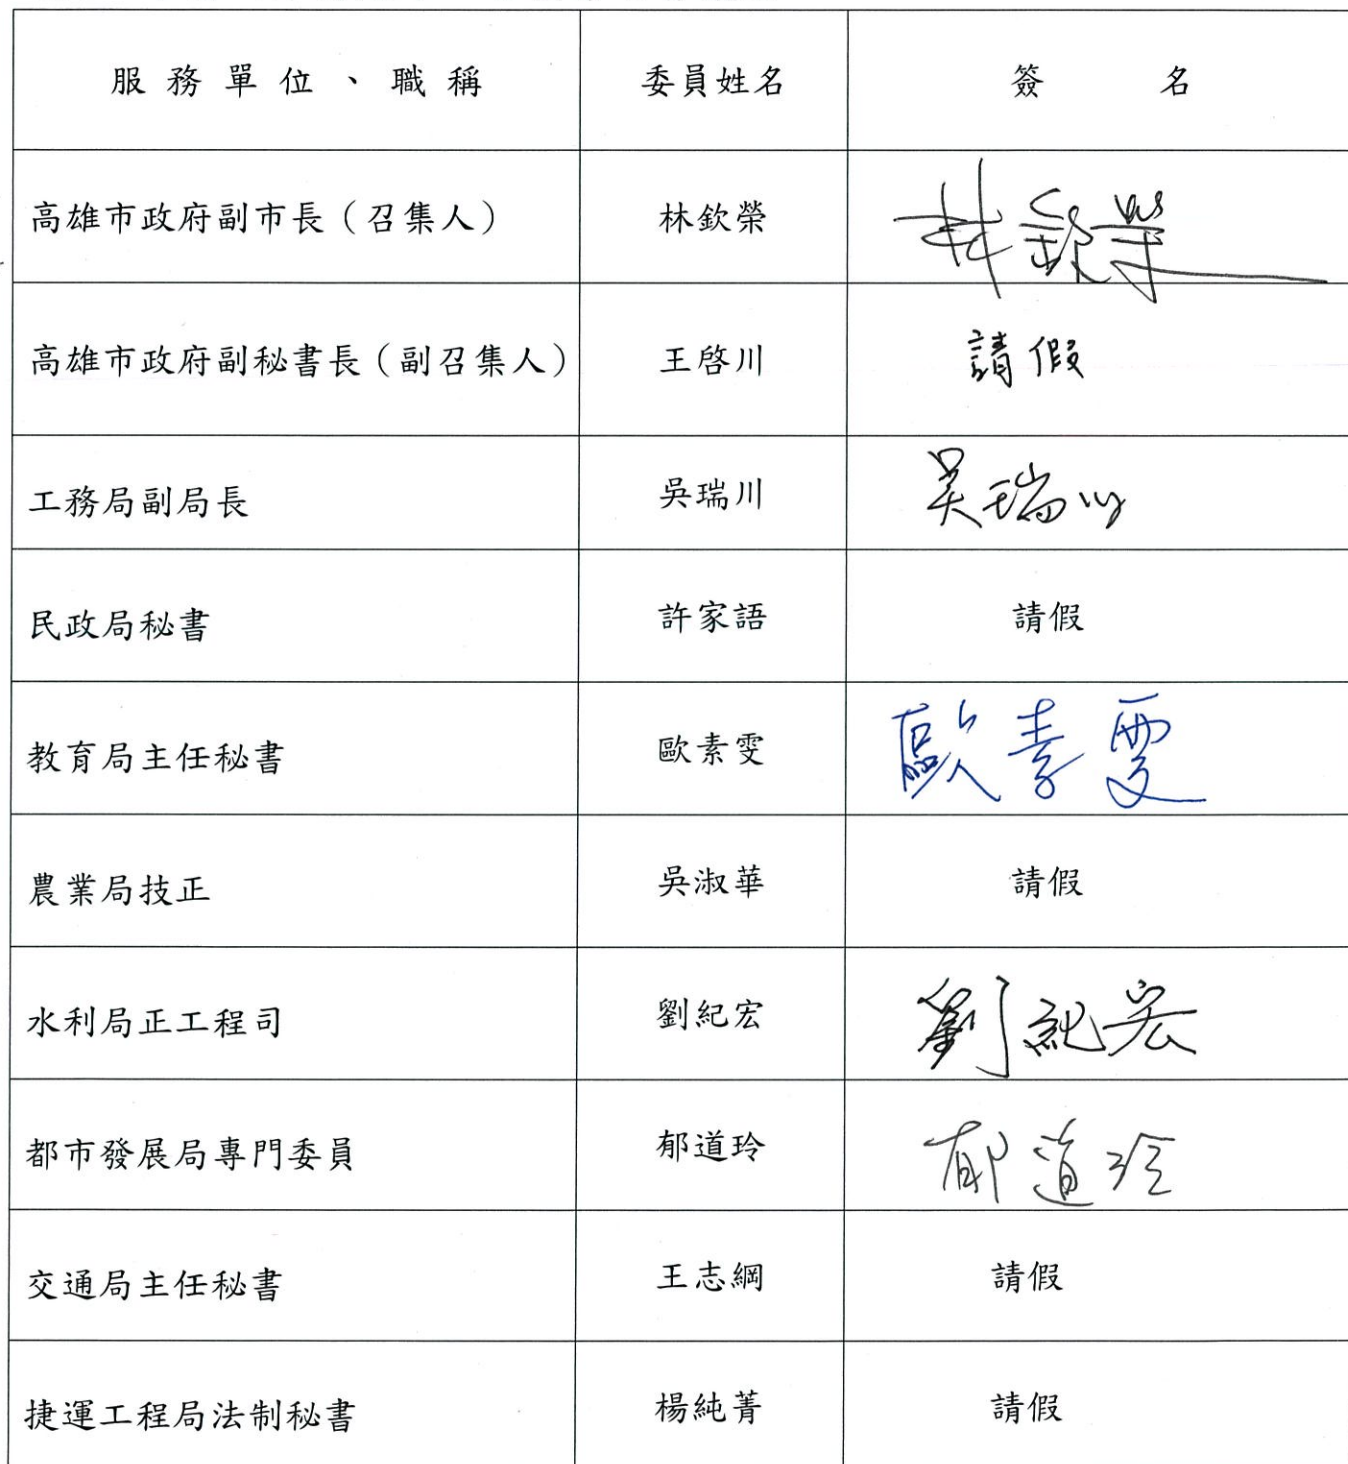 服務單位、職稱 委員姓名 簽名
高雄市政府副市長（召集人） 林欽榮 林欽榮
高雄市政府副秘書長（副召集人） 王啓川 請假
工務局副局長 吳瑞川 吳瑞川
民政局秘書 許家語 請假
教育局主任秘書 歐素雯 歐素雯
農業局技正 吳淑華 請假
水利局正工程司 劉紀宏 劉紀宏
都市發展局專門委員 郁道玲 郁道玲
交通局主任秘書 王志綱 請假
捷運工程局法制秘書 楊純菁 請假